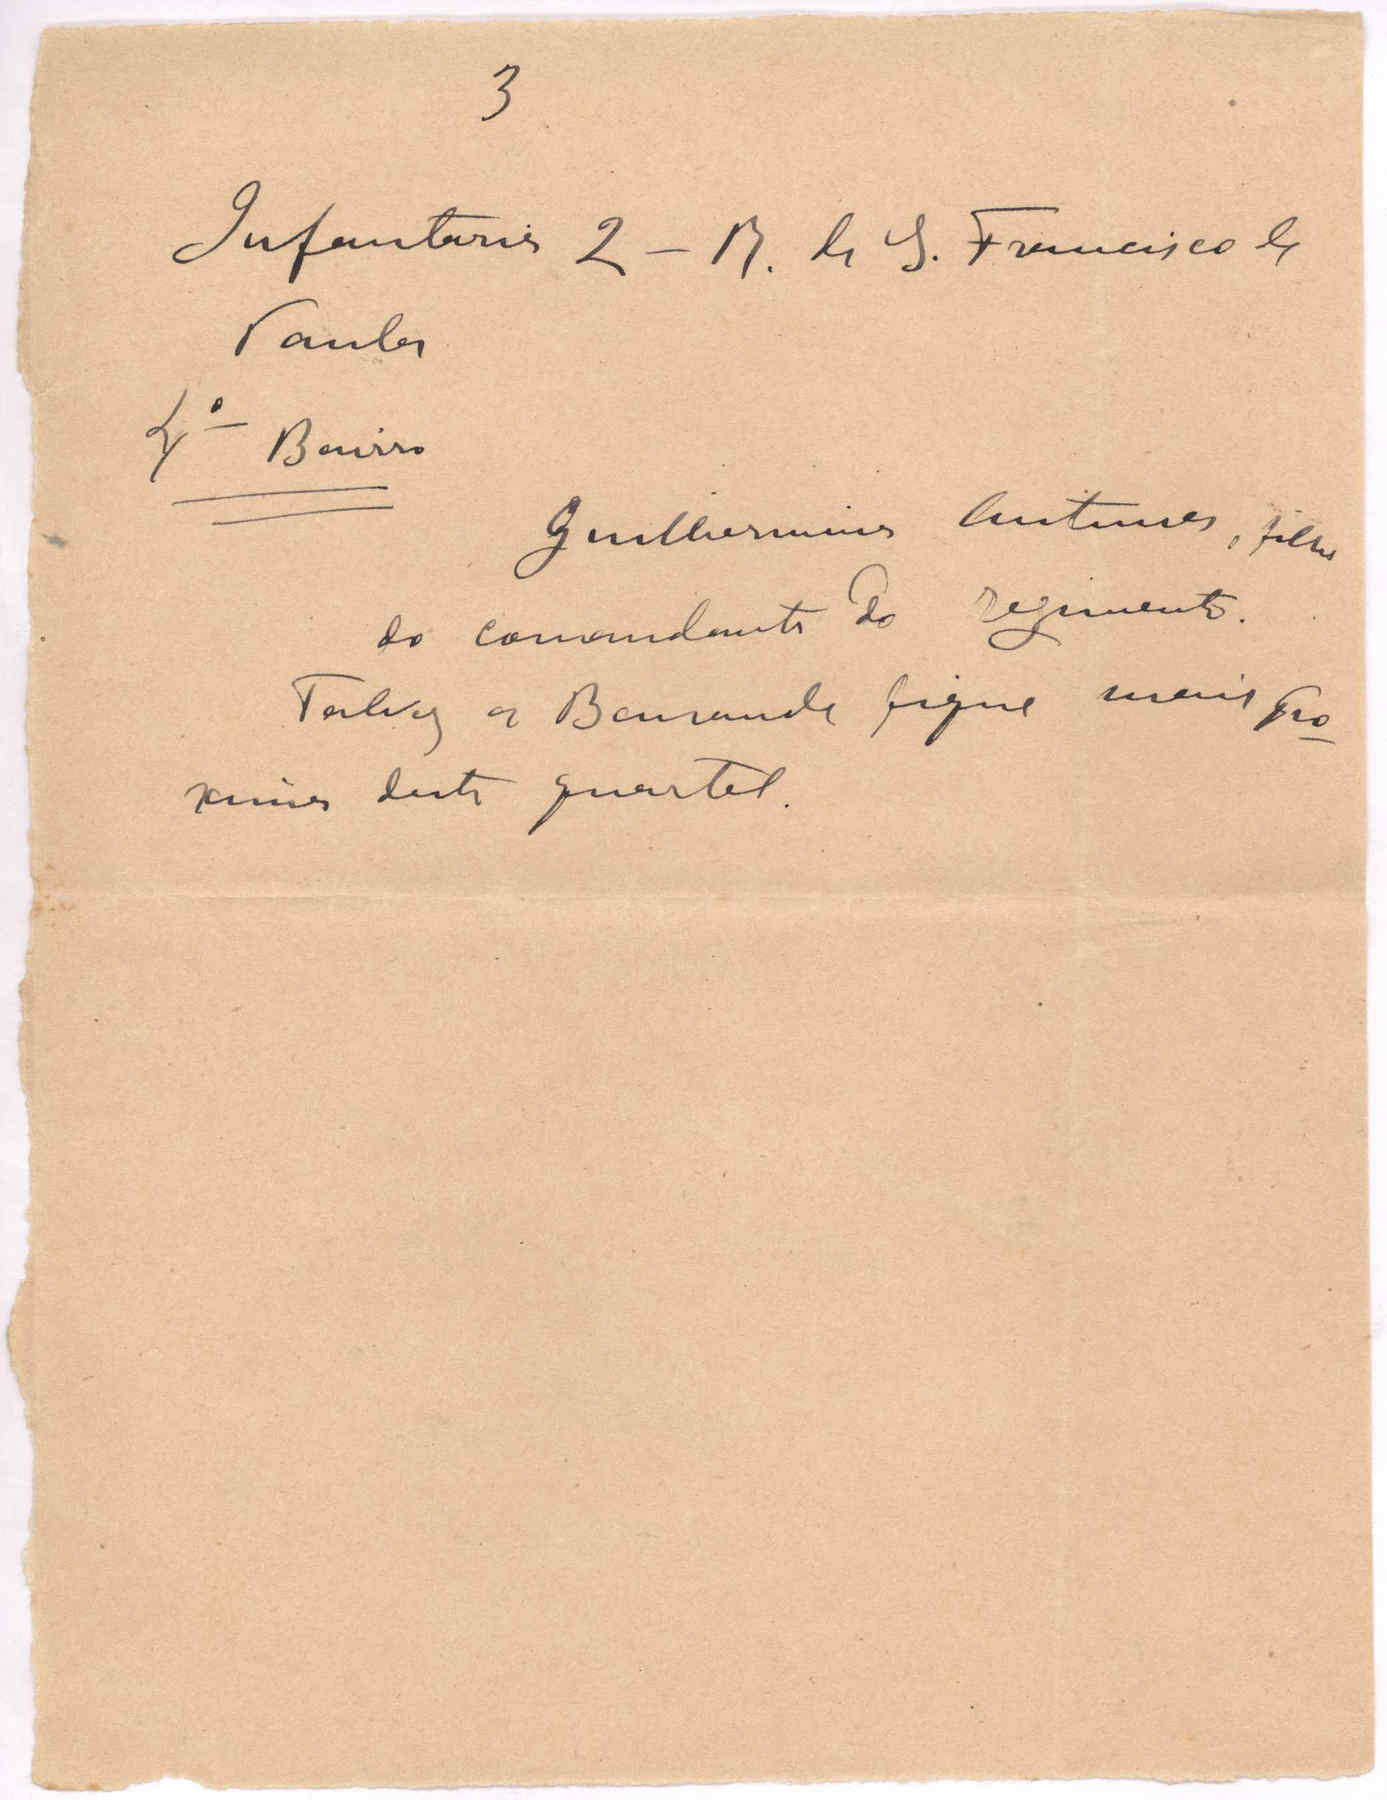 3
Infantaria 2 – R. de S. Francisco de
Paula
4º Bairro
Guilhermina Antunes, filha
do comandante do regimento.
Talvez a Bensaude fique mais pro-
xima deste quartel.